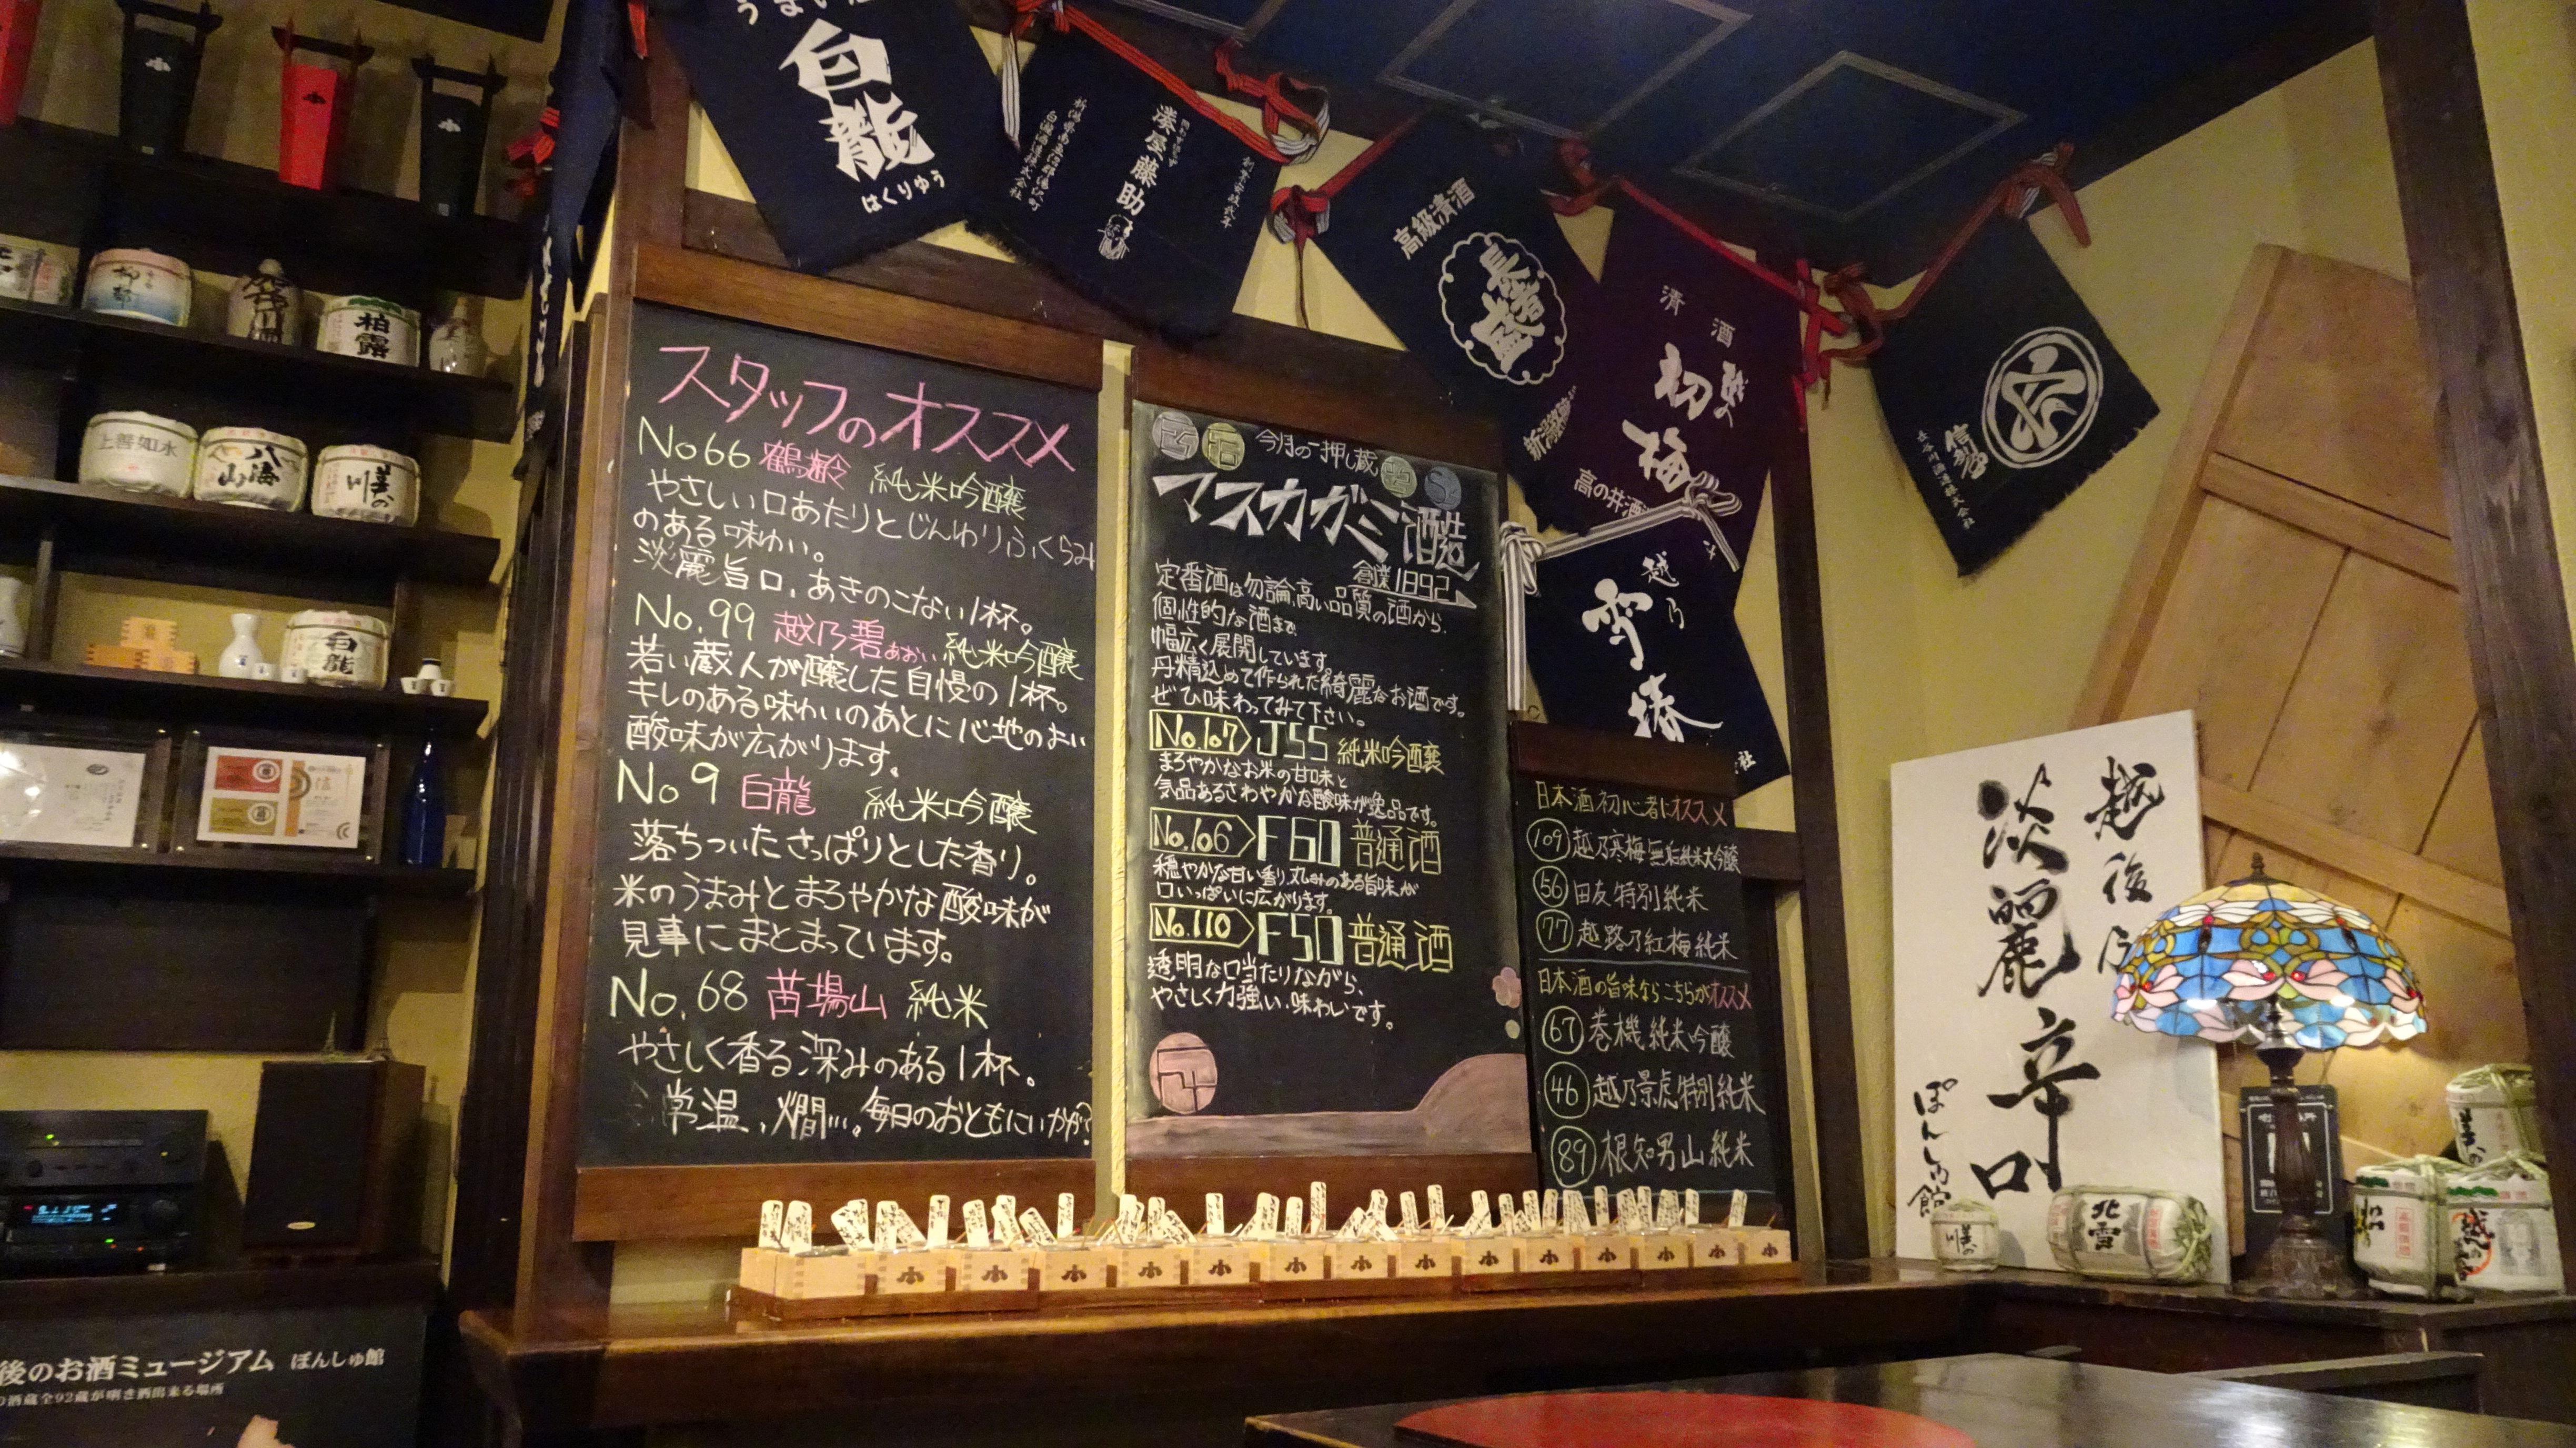 白龍
はくりゅう
湊屋藤助
高級清酒
長者盛
清酒
初梅
高の井酒
越乃
雪椿
信勢
柏露
上善如水
八海山
美の川
白龍
スタッフのオススメ
No66 鶴齢 純米吟醸
やさしい口あたりとじんわりふくらみ
のある味わい。
淡麗旨口。あきのこない1杯。
No.99 越乃碧 あおい 純米吟醸
若い蔵人が醸した自慢の1杯。
キレのある味わいのあとに心地のよい
酸味が広がります。
No9 白龍 純米吟醸
落ちついたさっぱりとした香り。
米のうまみとまろやかな酸味が
見事にまとまっています。
No.68 苗場山 純米
やさしく香る深みのある1杯。
常温、燗…。毎日のおともにいかが?
今月の一押し蔵
マスカガミ酒造
創業1892
定番酒は勿論、高い品質の酒から、
個性的な酒まで
幅広く展開しています。
丹精込めて作られた綺麗なお酒です。
ぜひ味わってみて下さい。
No.107 J55 純米吟醸
まろやかなお米の甘味と
気品あるさわやかな酸味が逸品です。
No.106 F60 普通酒
穏やかな甘い香り、丸みのある旨味が
口いっぱいに広がります。
No.110 F50 普通酒
透明な口当たりながら、
やさしく力強い味わいです。
日本酒初心者にオススメ
109 越乃寒梅 無垢純米大吟醸
56 田友 特別純米
77 越路乃紅梅 純米
日本酒の旨味ならこちらがオススメ
67 巻機 純米吟醸
46 越乃景虎 特別純米
89 根知男山 純米
越後乃
淡麗辛口
ぽんしゅ館
美の川
北雪
後のお酒ミュージアム ぽんしゅ館
の酒蔵全92蔵が唎き酒出来る場所